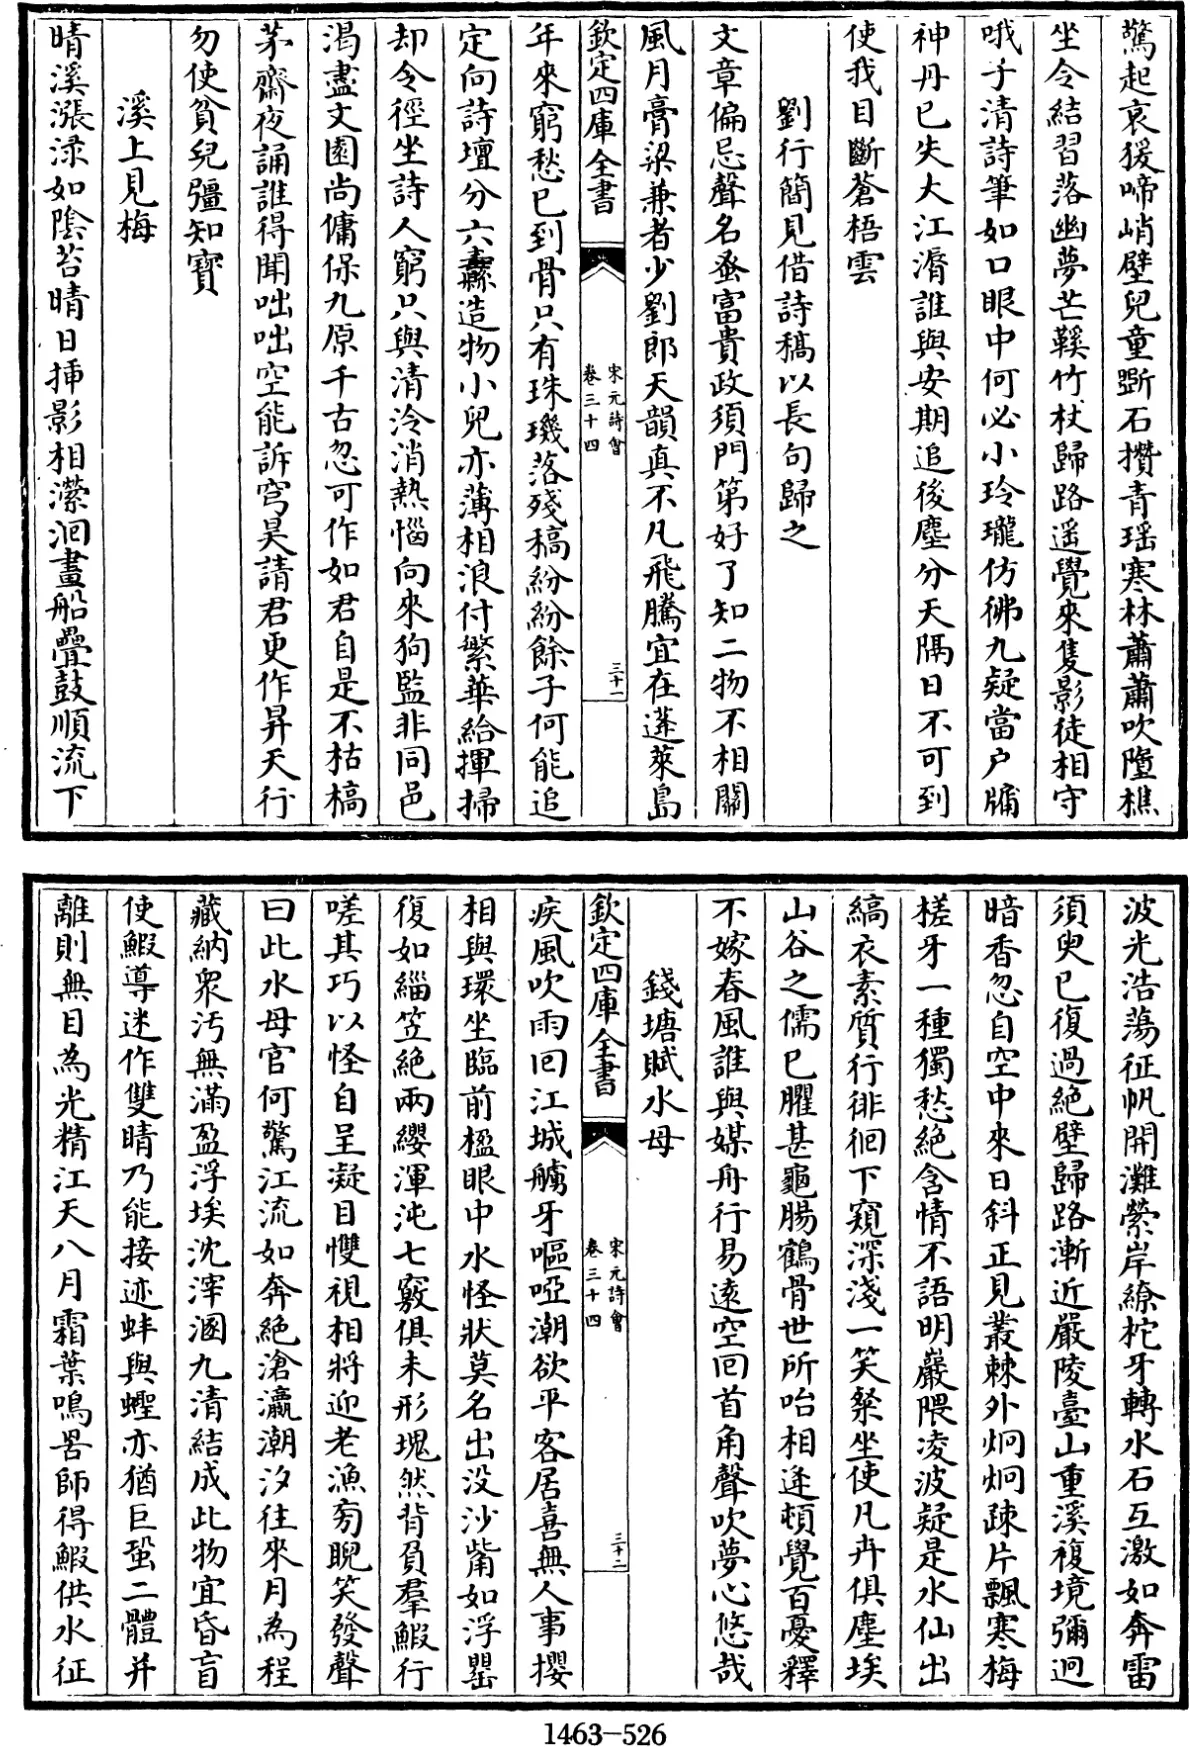 驚起哀猨啼峭壁兒童斲石攢青瑶寒林蕭蕭吹墮樵
坐令結習落幽夢芒鞵竹杖歸路遥覺來隻影徒相守
哦子清詩筆如口眼中何必小玲瓏仿彿九疑當户牖
神丹已失大江湣誰與安期追後塵分天隔日不可到
使我目斷蒼梧雲
劉行簡見借詩稿以長句歸之
文章偏忌聲名蚤富貴政須門第好了知二物不相關
風月膏粱兼者少劉郎天韻真不凡飛騰宜在蓬萊島
欽定四庫全書
宋元詩會
卷三十四
三十一
年來窮愁已到骨只有珠璣落殘稿紛紛餘子何能追
定向詩壇分六纛造物小兒亦薄相浪付繁華給揮掃
却令徑坐詩人窮只與清泠消熱惱向來狗監非同邑
渴盡文園尚傭保九原千古忽可作如君自是不枯槁
茅齋夜誦誰得聞咄咄空能訴穹昊請君更作昇天行
勿使貧兒彊知寳
溪上見梅
晴溪漲渌如陰苔晴日揷影相瀠洄畫船疊鼓順流下
波光浩蕩征帆開灘縈岸繚柁牙轉水石互激如奔雷
須臾已復過絶壁歸路漸近嚴陵臺山重溪複境彌迥
暗香忽自空中來日斜正見叢棘外炯炯疎片飄寒梅
槎牙一種獨愁絶含情不語明巖隈凌波疑是水仙出
縞衣素質行徘徊下窺深淺一笑粲坐使凡卉俱塵埃
山谷之儒已臞甚龜腸鶴骨世所咍相逢頓覺百憂釋
不嫁春風誰與媒舟行易逺空回首角聲吹夢心悠哉
錢塘賦水母
欽定四庫全書
宋元詩會
卷三十四
三十二
疾風吹雨回江城艣牙嘔啞潮欲平客居喜無人事攖
相與環坐臨前楹眼中水怪狀莫名出没沙觜如浮罌
復如緇笠絶兩纓渾沌七竅俱未形塊然背負羣鰕行
嗟其巧以怪自呈凝目㦬視相將迎老漁旁睨笑發聲
曰此水母官何驚江流如奔絶滄瀛潮汐往來月為程
藏納衆汚無滿盈浮埃沈滓溷九清結成此物宜昏盲
使鰕導迷作雙睛乃能接迹蚌與蟶亦猶巨蛩二體并
離則無目為光精江天八月霜葉鳴罟師得鰕供水征
1463-526